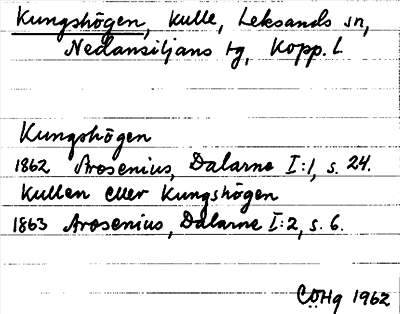 Kungshögen, kulle, Leksands sn,
Nedansiljans tg, Kopp. l.
Kungshögen
1862 Arosenius, Dalarne I:1, s. 24.
Kullen eller Kungshögen
1863 Arosenius, Dalarne I:2, s. 6.
CÖHg 1962